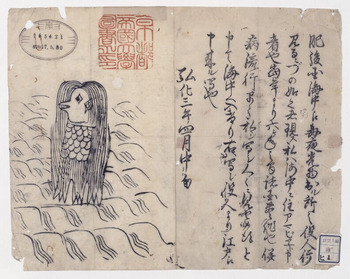 肥後国海中え毎夜光物出ル所之役人行
見るニづの如之者現ス私ハ海中ニ住アマビヱト申
者也當年より六ヶ年之間諸国豊作也併
病流行早々私シ写シ人々ニ見セ候得と
申て海中へ入けり右写シ役人より江戸え
申来ル写也
弘化三年四月中旬
京都
帝國大學
圖書之印